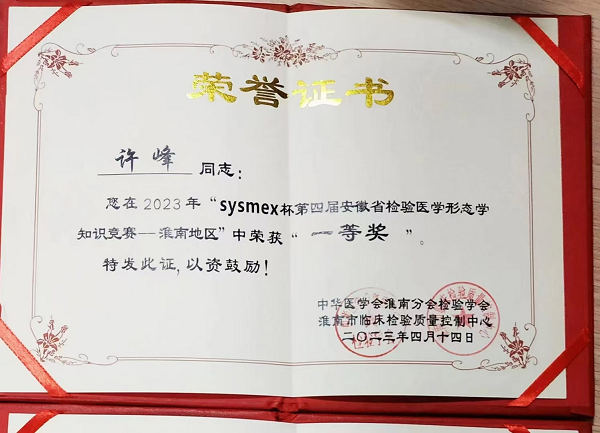 荣誉证书
许峰 同志：
您在2023年“sysmex杯第四届安徽省检验医学形态学
知识竞赛--淮南地区”中荣获“一等奖”。
特发此证，以资鼓励！
中华医学会淮南分会检验学会
淮南市临床检验质量控制中心
二〇二三年四月十四日